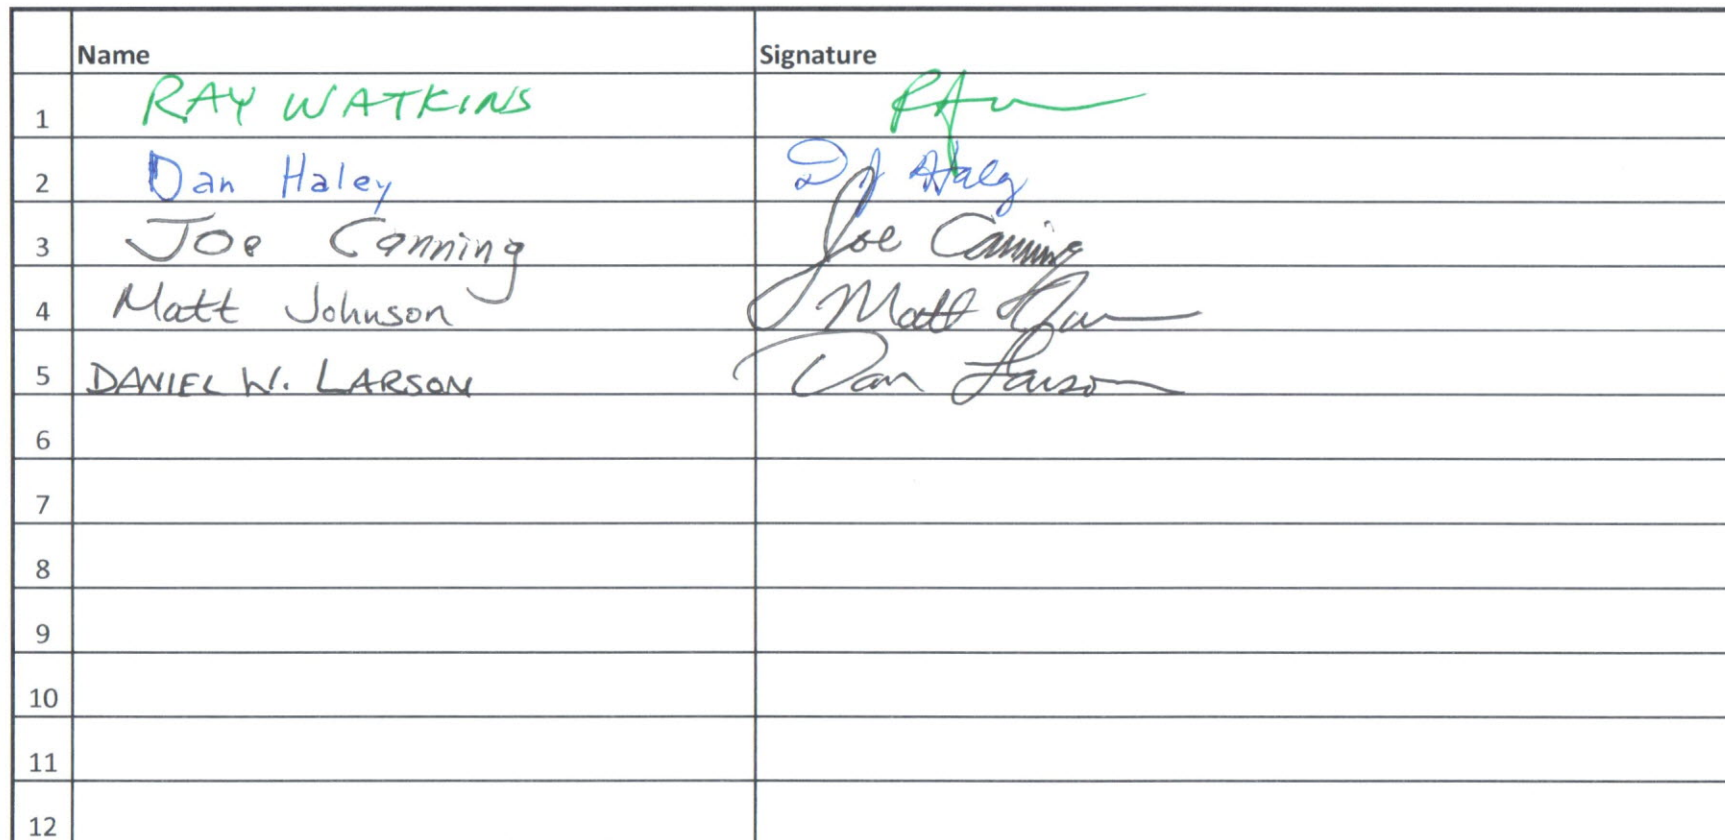 Name Signature
1 RAY WATKINS
2 Dan Haley
3 Joe Canning Joe Canning
4 Matt Johnson Matt
5 DANIEL W. LARSON Dan Larson
6
7
8
9
10
11
12